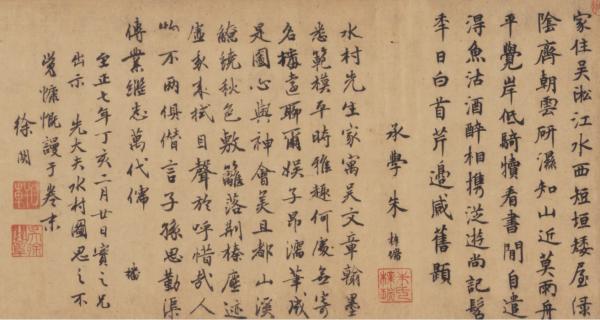 家住吳淞江水西短垣矮屋綠
陰齊朝雲研濕知山近莫雨舟
平覺岸低騎犢看書閒自遣
得魚沽酒醉相携從遊尚記髫
年日白首芹邊感舊題
承學朱
水村先生家寓吳文章翰墨
悉範模平時雅趣何處無寄
名聊爾娛子昂濡筆成
是圖心與神會美且都山溪
繚繞秋色敷籬落荆榛塵迹
虛我來拭目聲於呼惜哉人
此不兩俱偕言子孫思勤渠
傳業繼志萬代儒
至正七年丁亥二月廿日實之兄
出示 先大夫水村圖思之不
覺慷慨謾于卷末
徐関